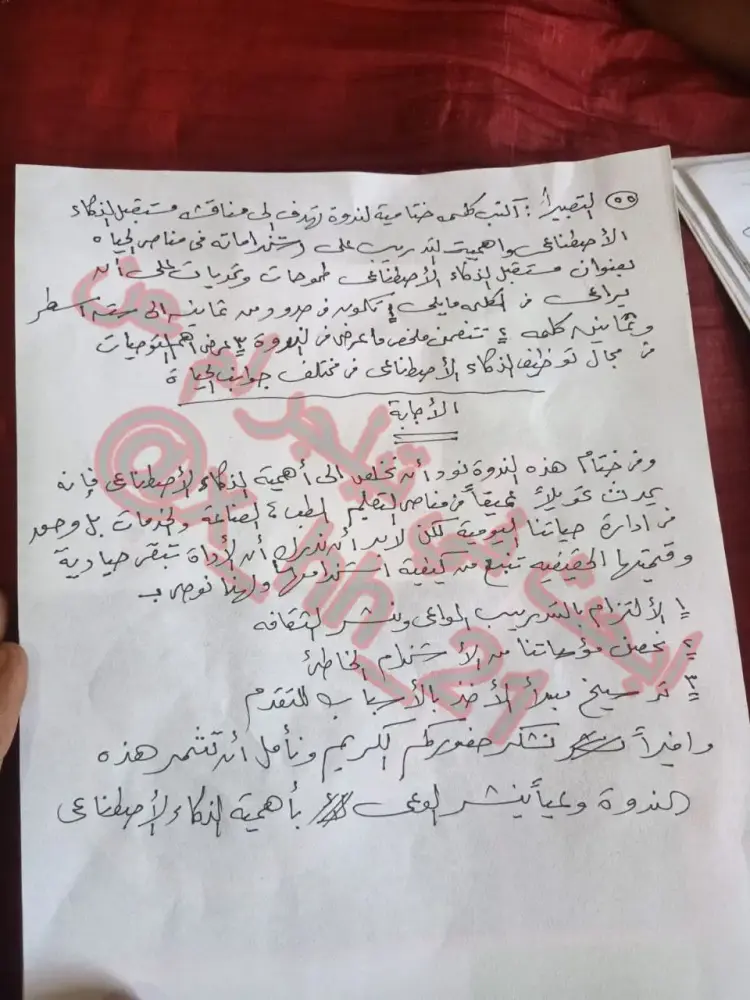 ٥٥ التعبير: أكتب كلمه ختامية لندوة تهدف الى مناقشه مستقبل الذكاء
الأصطناعى واهميت التدريب على استخداماته فى مناحى الحياه
بعنوان مستقبل الذكاء الأصطناعى طموحات وتحديات على أن
يراعى فى الكلمه مايلى ١ تكون فى حدود من ثمانيه الى سته اسطر
وثمانين كلمه ٢ تتضمن ملخص ماعرض فى الندوة ٣ عرض اهم التوصيات
فى مجال توظيف الذكاء الأصطناعى فى مختلف جوانب الحياة
الأجابة
وفى ختام هذه الندوة نود أن نخلص الى أهمية الذكاء الأصطناعى فإنه
يحدث تحويلاً عميقاً فى مناحى التعليم الطب ، الصناعة والخدمات بل وحتى
فى ادارة حياتنا اليومية لكن لابد أن ندرك أن الأداة تبقى حيادية
وقيمتها الحقيقيه تنبع من كيفية استخدامها ولهذا نوصى ب
١ الألتزام بالتدريب الواعى ونشر الثقافه
٢ نحصن مؤسساتنا من الأستخدام الخاطئ
٣ ترسيخ مبدأ الأخذ بالأسباب للتقدم
وأخيراً نشكر حضوركم الكريم ونأمل أن تثمر هذه
الندوة وعياً ينشر الوعى بأهمية الذكاء الأصطناعى
ابحث في تيليجرام عن
@x_hh_21